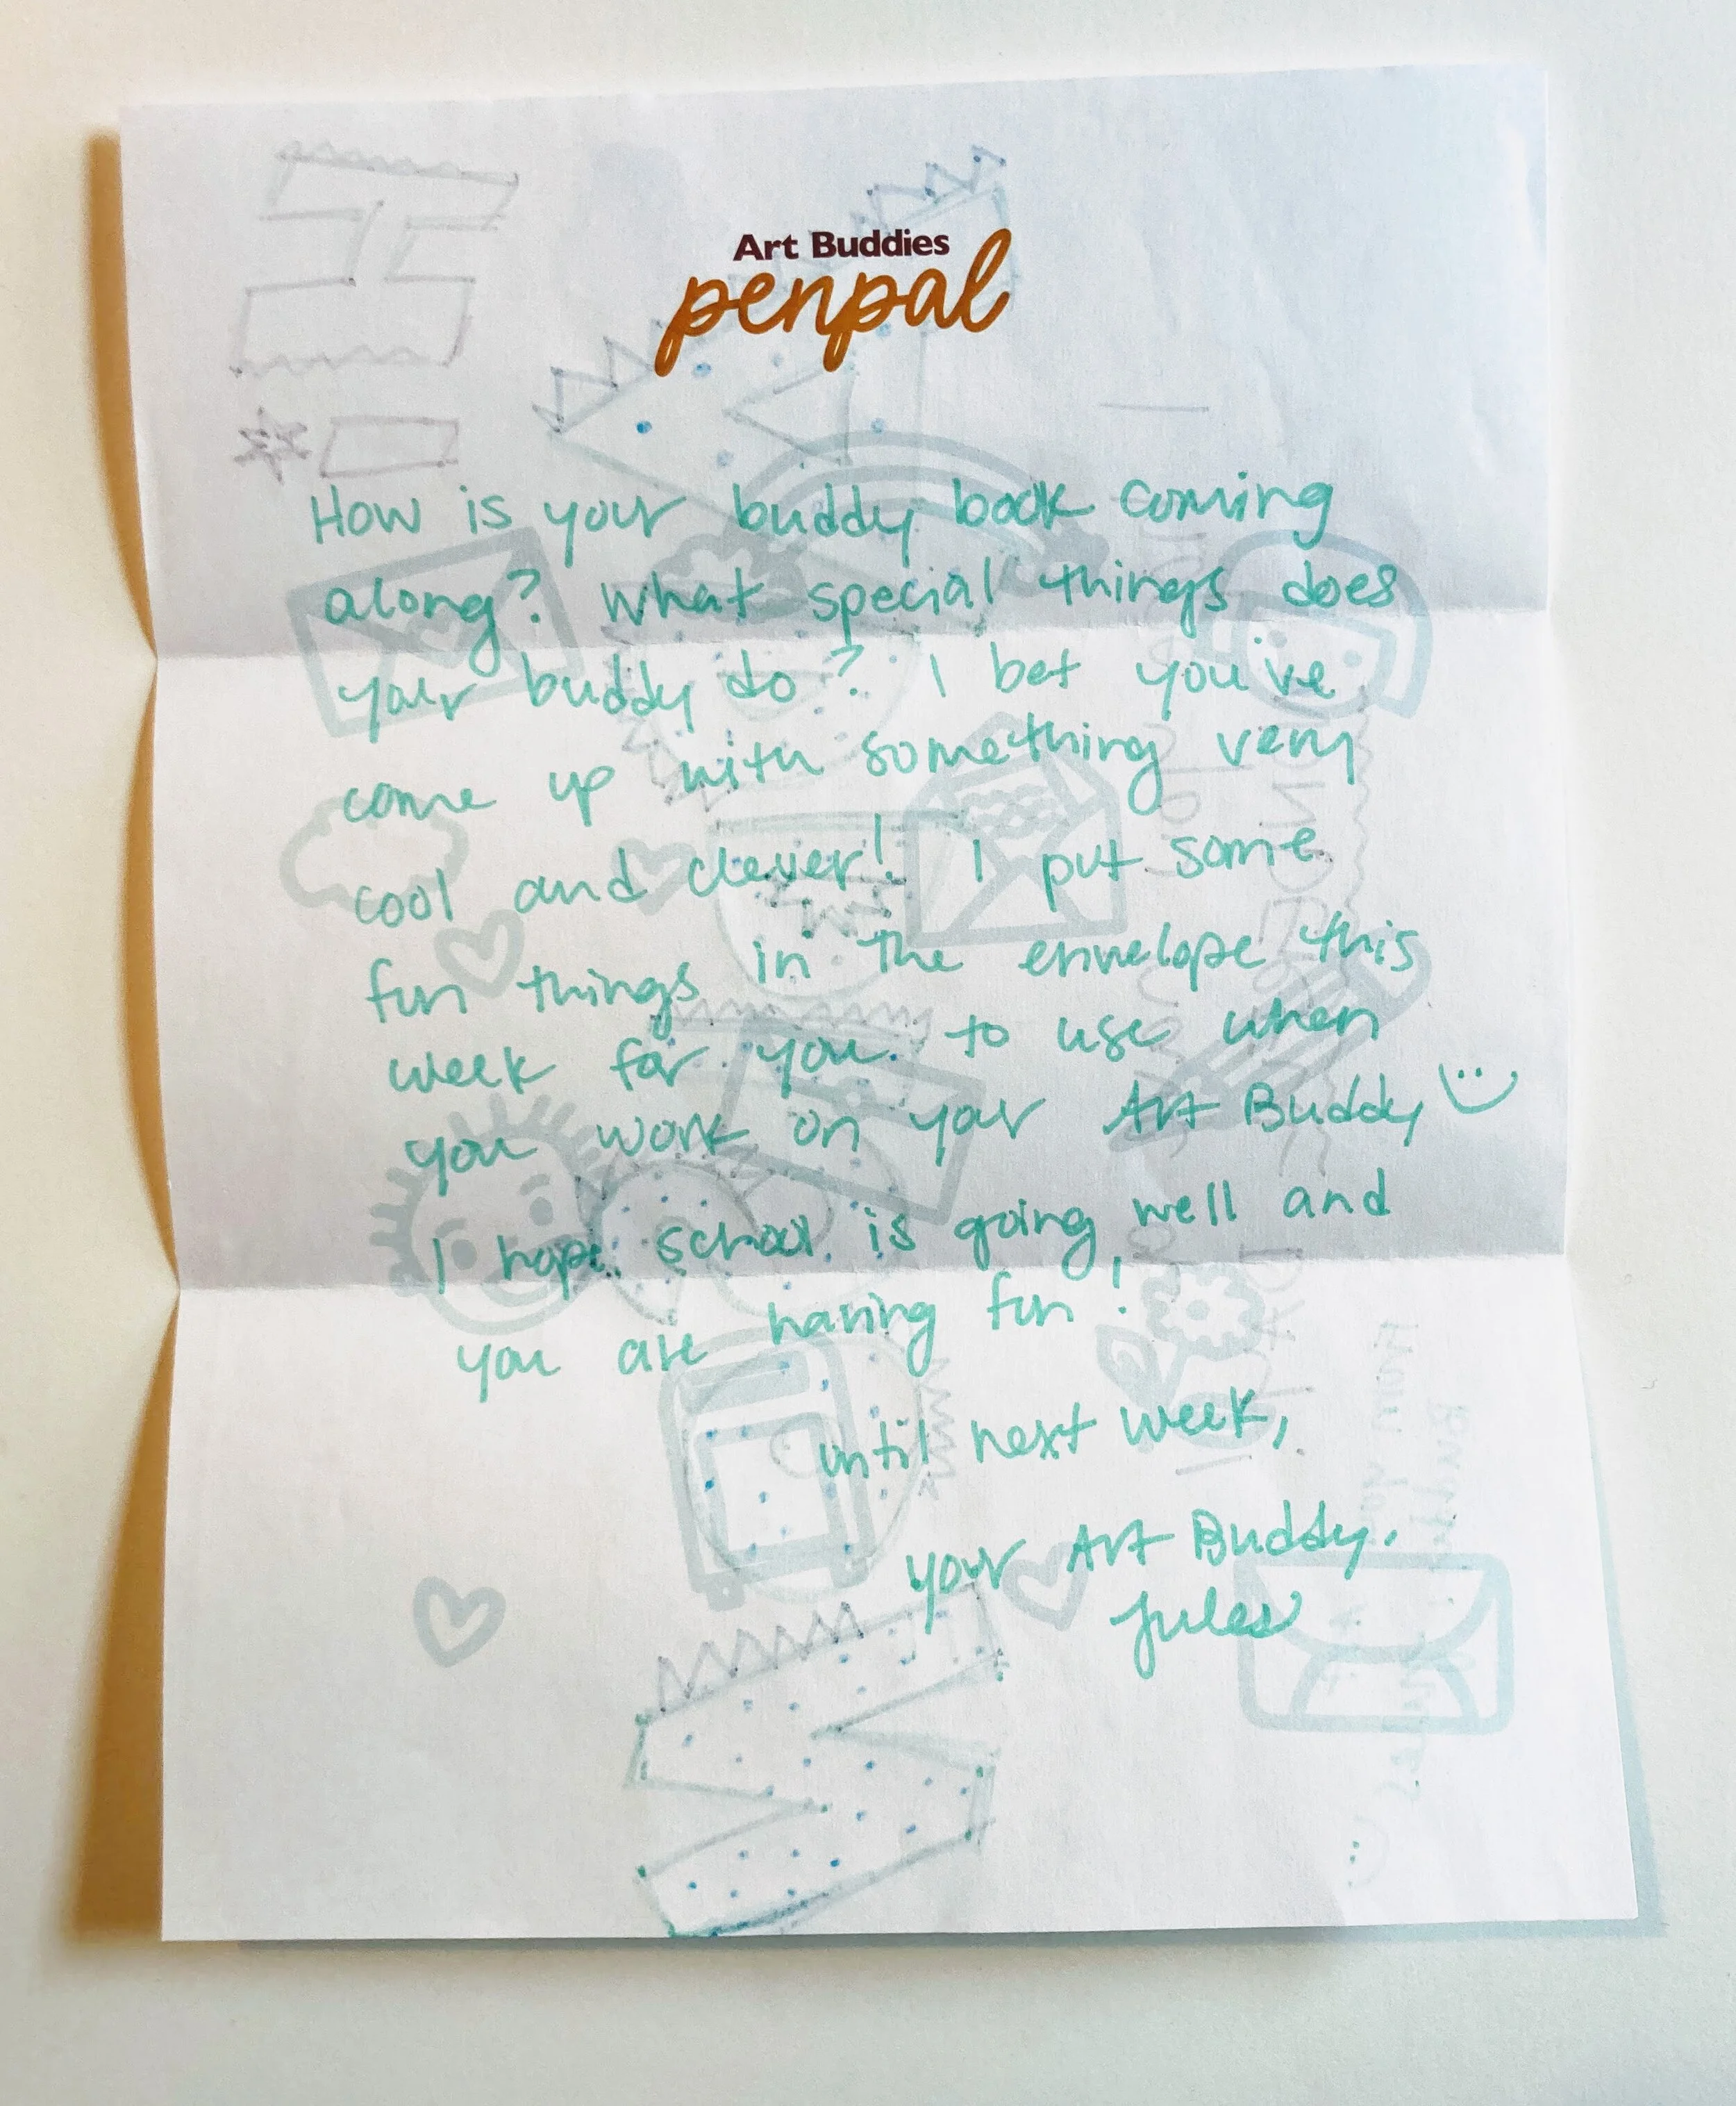 Art Buddies
penpal
How is your buddy book coming
along? What special things does
your buddy do? I bet you've
come up with something very
cool and clever! I put some
fun things in the envelope this
week for you to use when
you work on your Art Buddy
I hope school is going well and
you are having fun!
until next week,
your Art Buddy,
Jules